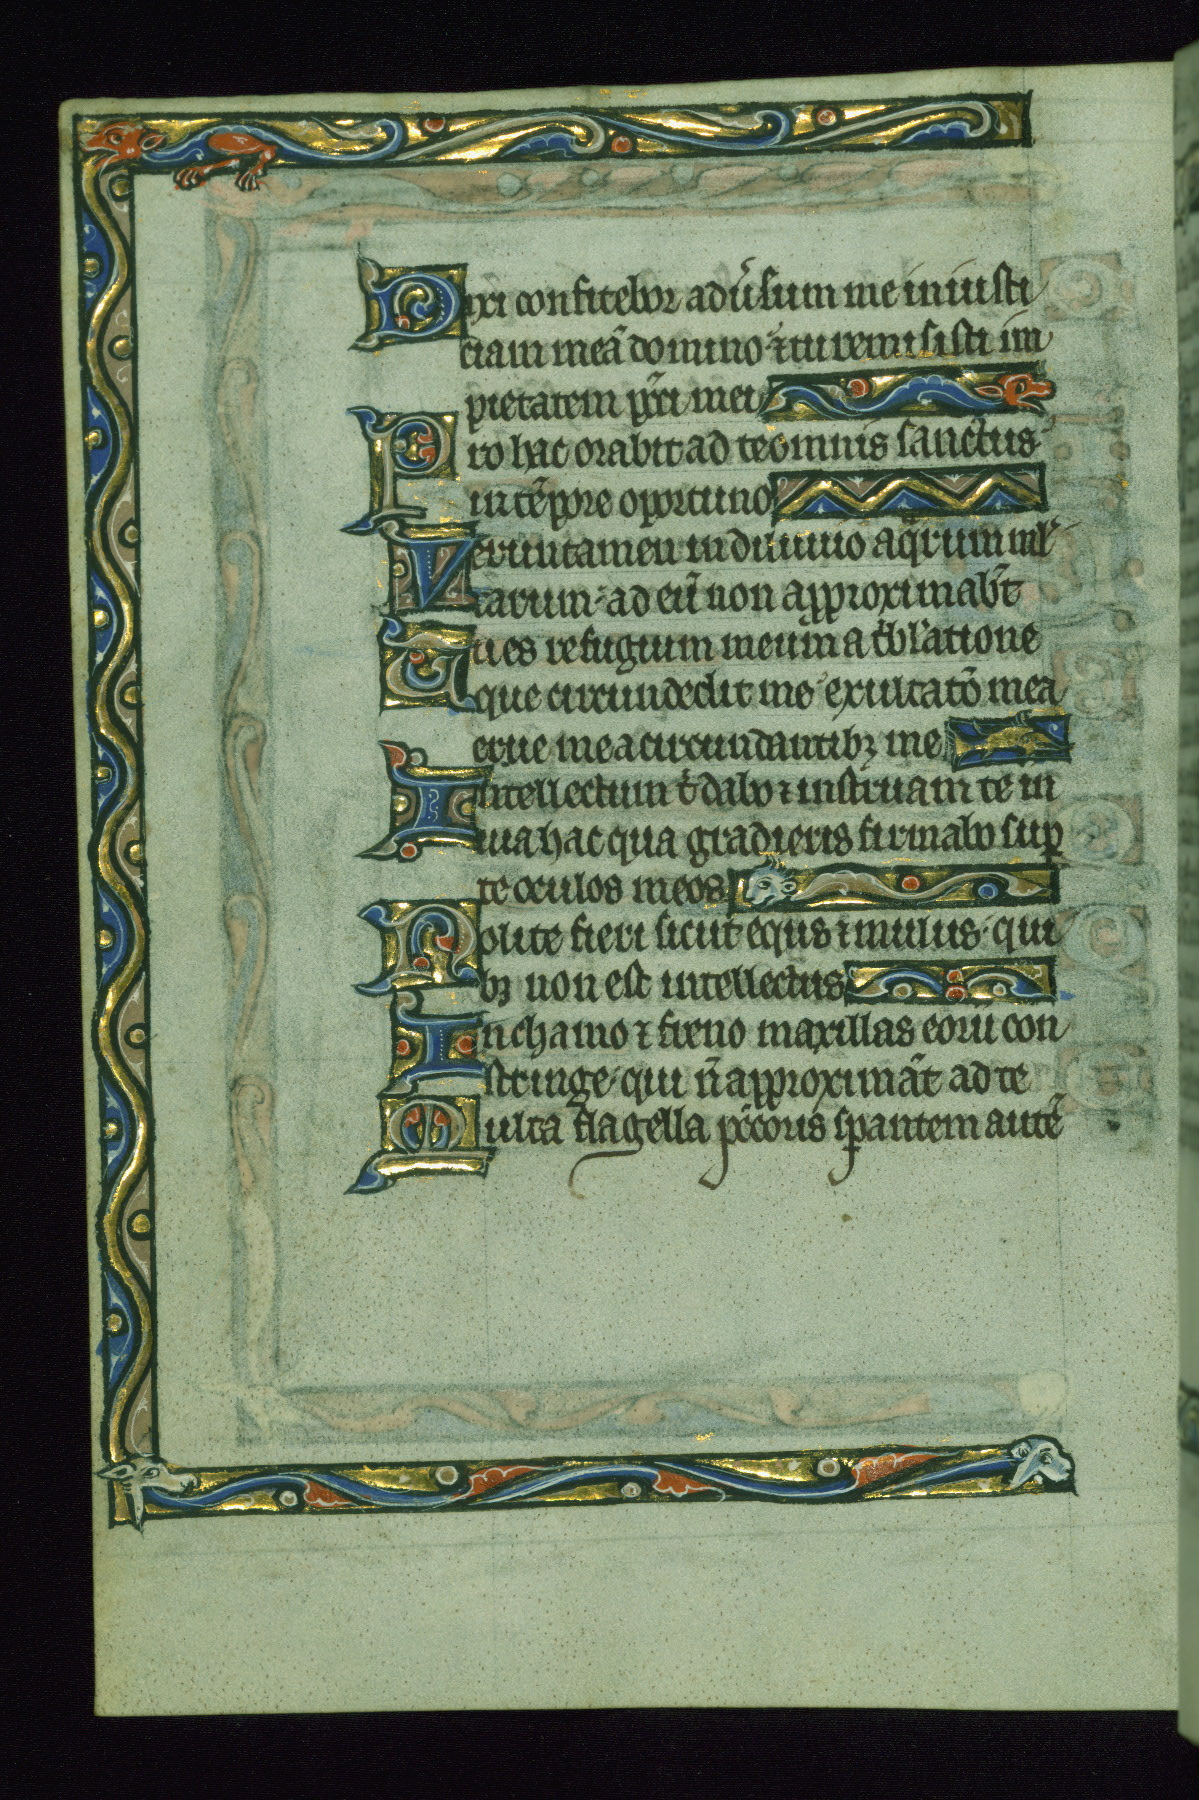 Dixi confitebor adūsum me iniusti
ciam meā domino ⁊ tu remisisti im
pietatem pc̄c̄i mei
Pro hac orabit ad te omnis sanctus
in tēpore oportuno
Veruntamen in diluuio aq̄rum ml
tarum ad eū non approximab̄t
Tu es refugium meum a tbl'atione
que circundedit me exultatō mea
erue me a circundantibꝫ me
Intellectum t dabo ⁊ instruam te in
uia hac qua gradieris firmabo suꝑ
te oculos meos
Nolite fieri sicut equs ⁊ mulus qui
bꝫ non est intellectus
In chamo ⁊ freno maxillas eorū con
stringe qui n̄ approximāt ad te
Multa flagella pc̄coris sꝑantem autē